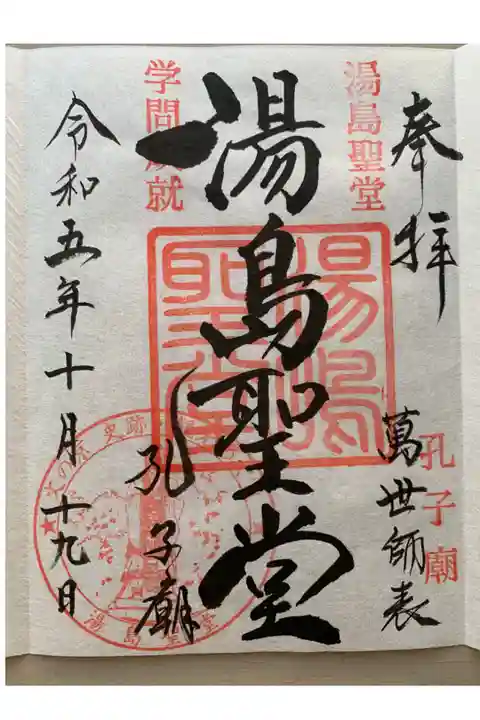 奉拝
萬世師表
孔子廟
湯島聖堂
湯島聖堂
湯島聖堂
孔子廟
学問成就
令和五年十月十九日
史跡
湯島聖堂